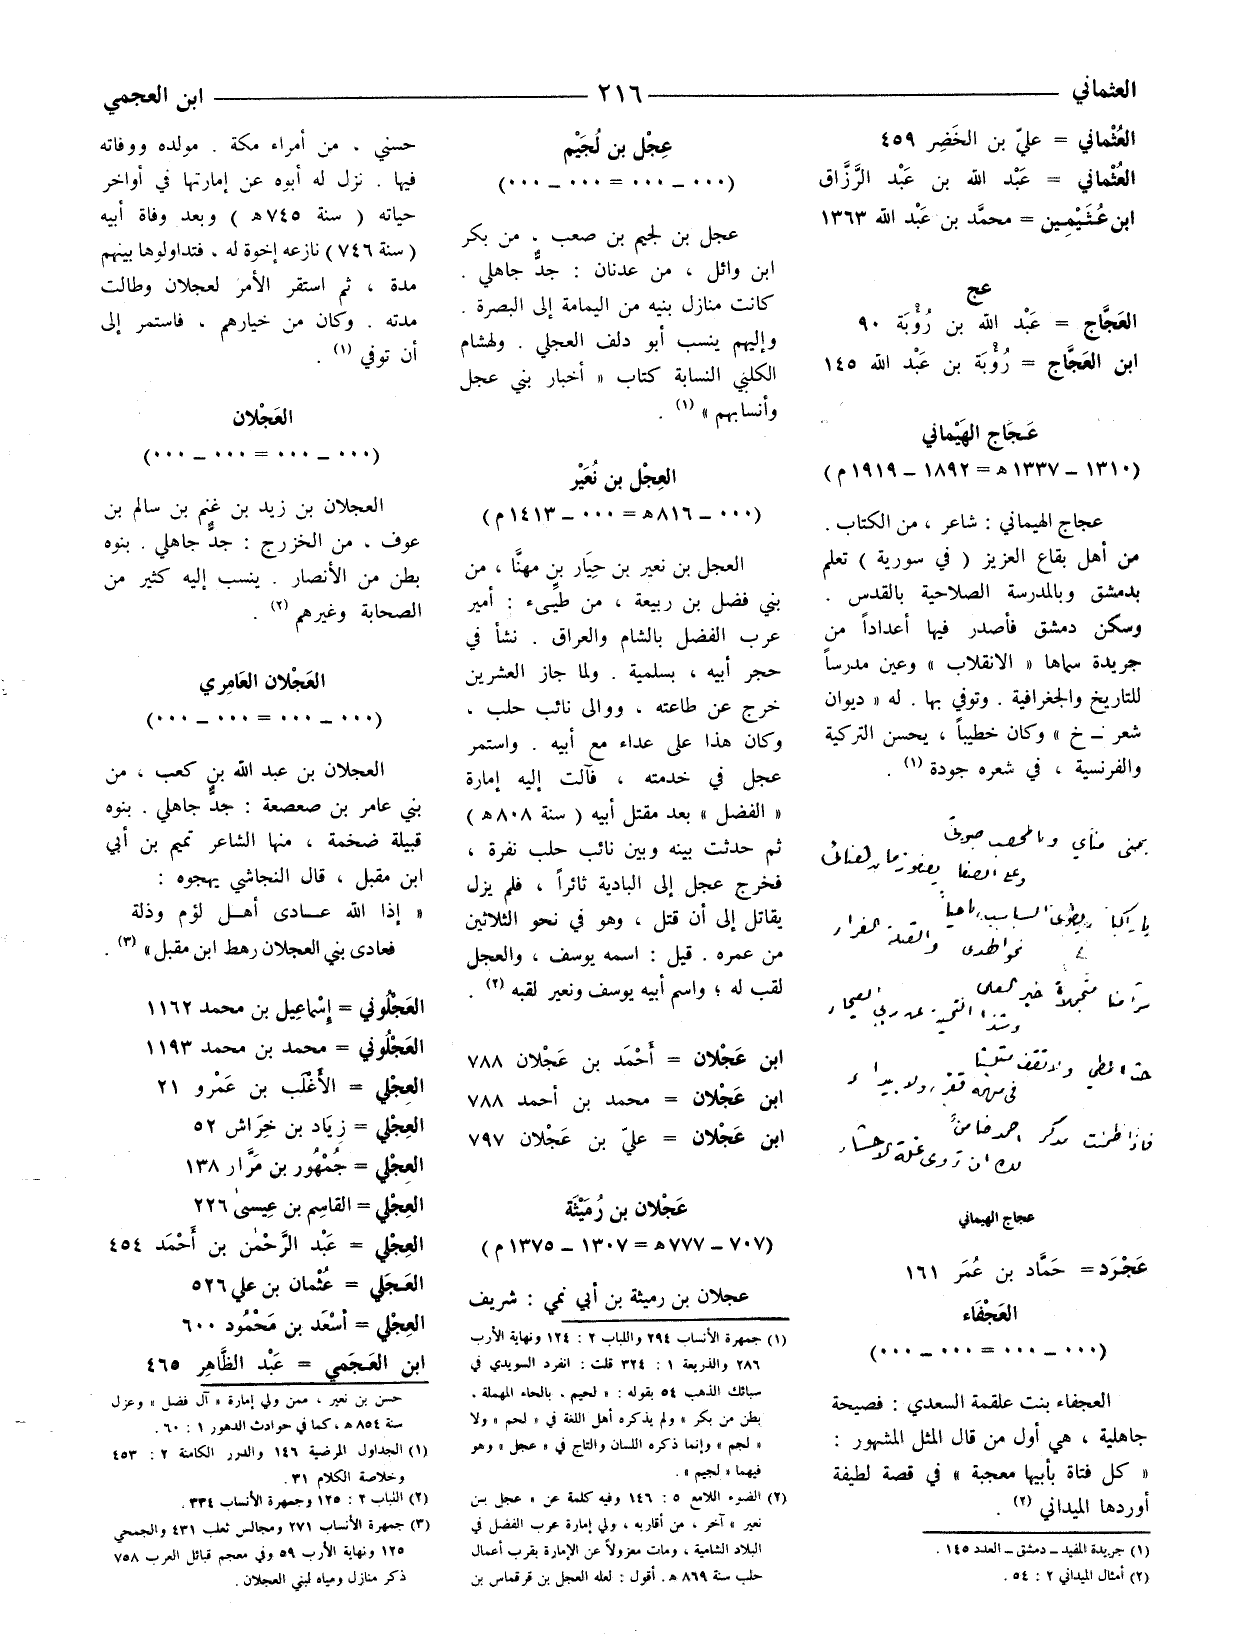 العثماني
٢١٦
ابن العجمي
العُثْماني = عليّ بن الخَضِر ٤٥٩
العُثْماني = عَبْد الله بن عَبْد الرَّزَّاق
ابن عُثَيْمِين = محمَّد بن عَبْد الله ١٣٦٣
عج
العَجَّاج = عَبْد الله بن رُؤْبَة ٩٠
ابن العَجَّاج = رُؤْبَة بن عَبْد الله ١٤٥
عَجَاج الهَيْماني
(١٣١٠ – ١٣٣٧ ه = ١٨٩٢ – ١٩١٩ م)
عجاج الهيماني : شاعر ، من الكتاب .
من أهل بقاع العزيز ( في سورية ) تعلم
بدمشق وبالمدرسة الصلاحية بالقدس .
وسكن دمشق فأصدر فيها أعداداً من
جريدة سماها « الانقلاب » وعين مدرساً
للتاريخ والجغرافية . وتوفي بها . له « ديوان
شعر – خ » وكان خطيباً ، يحسن التركية
والفرنسية ، في شعره جودة (١) .
عجاج الهيماني
عَجْرَد = حَمَّاد بن عُمَر ١٦١
العَجْفَاء
(٠٠٠ – ٠٠٠ = ٠٠٠ – ٠٠٠)
العجفاء بنت علقمة السعدي : فصيحة
جاهلية ، هي أول من قال المثل المشهور :
« كل فتاة بأبيها معجبة » في قصة لطيفة
أوردها الميداني (٢) .
(١) جريدة المفيد – دمشق – العدد ١٤٥ .
(٢) أمثال الميداني ٢ : ٥٤ .
عِجْل بن لُجَيْم
(٠٠٠ – ٠٠٠ = ٠٠٠ – ٠٠٠)
عجل بن لجيم بن صعب ، من بكر
ابن وائل ، من عدنان : جدٌّ جاهلي .
كانت منازل بنيه من اليمامة إلى البصرة .
وإليهم ينسب أبو دلف العجلي . ولهشام
الكلبي النسابة كتاب « أخبار بني عجل
وأنسابهم » (١) .
العِجْل بن نُعَيْر
(٠٠٠ – ٨١٦ه = ٠٠٠ – ١٤١٣ م)
العجل بن نعير بن حِيَار بن مهنَّا ، من
بني فضل بن ربيعة ، من طيِّىء : أمير
عرب الفضل بالشام والعراق . نشأ في
حجر أبيه ، بسلمية . ولما جاز العشرين
خرج عن طاعته ، ووالى نائب حلب ،
وكان هذا على عداء مع أبيه . واستمر
عجل في خدمته ، فآلت إليه إمارة
« الفضل » بعد مقتل أبيه ( سنة ٨٠٨ه )
ثم حدثت بينه وبين نائب حلب نفرة ،
فخرج عجل إلى البادية ثائراً ، فلم يزل
يقاتل إلى أن قتل ، وهو في نحو الثلاثين
من عمره . قيل : اسمه يوسف ، والعجل
لقب له ؛ واسم أبيه يوسف ونعير لقبه (٢) .
ابن عَجْلان = أَحْمَد بن عَجْلان ٧٨٨
ابن عَجْلان = محمد بن أحمد ٧٨٨
ابن عَجْلان = عليّ بن عَجْلان ٧٩٧
عَجْلان بن رُمَيْثَة
(٧٠٧ – ٧٧٧ه = ١٣٠٧ – ١٣٧٥ م)
عجلان بن رميثة بن أبي نمي : شريف
(١) جمهرة الأنساب ٢٩٤ واللباب ٢ : ١٢٤ ونهاية الأرب
٢٨٦ والذريعة ١ : ٣٢٤ قلت : انفرد السويدي في
سبائك الذهب ٥٤ بقوله : « لحيم ، بالحاء المهملة ،
بطن من بكر » ولم يذكره أهل اللغة في « لحم » ولا
« لجم » وإنما ذكره اللسان والتاج في « عجل » وهو
فيهما « لجيم » .
(٢) الضوء اللامع ٥ : ١٤٦ وفيه كلمة عن « عجل بن
نعير » آخر ، من أقاربه ، ولي إمارة عرب الفضل في
البلاد الشامية ، ومات معزولاً عن الإمارة بقرب أعمال
حلب سنة ٨٦٩ ه. أقول : لعله العجل بن قرقماس بن
حسني ، من أمراء مكة . مولده ووفاته
فيها . نزل له أبوه عن إمارتها في أواخر
حياته ( سنة ٧٤٥ه ) وبعد وفاة أبيه
(سنة ٧٤٦) نازعه إخوة له ، فتداولوها بينهم
مدة ، ثم استقر الأمر لعجلان وطالت
مدته . وكان من خيارهم ، فاستمر إلى
أن توفي (١) .
العَجْلان
(٠٠٠ – ٠٠٠ = ٠٠٠ – ٠٠٠)
العجلان بن زيد بن غنم بن سالم بن
عوف ، من الخزرج : جدٌّ جاهلي . بنوه
بطن من الأنصار . ينسب إليه كثير من
الصحابة وغيرهم (٢) .
العَجْلان العَامِري
(٠٠٠ – ٠٠٠ = ٠٠٠ – ٠٠٠)
العجلان بن عبد الله بن كعب ، من
بني عامر بن صعصعة : جدٌّ جاهلي . بنوه
قبيلة ضخمة ، منها الشاعر تميم بن أبي
ابن مقبل ، قال النجاشي يهجوه :
« إذا الله عادى أهل لؤم وذلة
فعادى بني العجلان رهط ابن مقبل » (٣) .
العَجْلُوني = إِسْماعِيل بن محمد ١١٦٢
العَجْلُوني = محمد بن محمد ١١٩٣
العِجْلي = الأَغْلَب بن عَمْرو ٢١
العِجْلي = زِيَاد بن خِرَاش ٥٢
العِجْلي = جُمْهُور بن مَرَّار ١٣٨
العِجْلي = القاسِم بن عِيسىٰ ٢٢٦
العِجْلي = عَبْد الرَّحْمٰن بن أَحْمَد ٤٥٤
العَجَلي = عُثْمان بن علي ٥٢٦
العِجْلي = أَسْعَد بن مَحْمُود ٦٠٠
ابن العَجَمي = عَبْد الظَّاهِر ٤٦٥
حسن بن نعير ، ممن ولي إمارة « آل فضل » وعزل
سنة ٨٥٤ ه ، كما في حوادث الدهور ١ : ٦٠ .
(١) الجداول المرضية ١٤٦ والدرر الكامنة ٢ : ٤٥٣
وخلاصة الكلام ٣١ .
(٢) اللباب ٢ : ١٢٥ وجمهرة الأنساب ٣٣٤ .
(٣) جمهرة الأنساب ٢٧١ ومجالس ثعلب ٤٣١ والجمحي
١٢٥ ونهاية الأرب ٥٩ وفي معجم قبائل العرب ٧٥٨
ذكر منازل ومياه لبني العجلان .